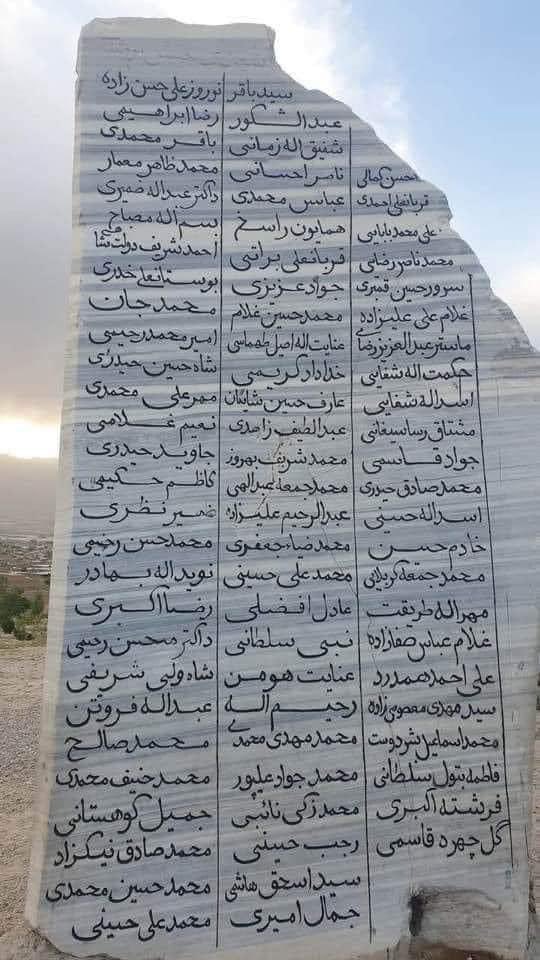 محسن کمالی
قربانعلی احمدی
علی محمد بابایی
محمد ناصر رضائی
سرور حسین قنبری
غلام علی علیزاده
ماستر عبدالعزیز رضایی
حکمت اله شفایی
اسداله شفایی
مشتاق رسا سیغانی
جواد قاسمی
محمد صادق حیدری
اسداله حسینی
خادم حسین
محمد جمعه کربلائی
مهراله طریقت
غلام عباس صفازاده
علی احمد همدرد
سید مهدی معصومی زاده
محمد اسماعیل بشردوست
فاطمه بتول سلطانی
فرشته اکبری
گل چهره قاسمی
سید باقر
عبدالشکور
شفیق اله زمانی
ناصر احسانی
عباس محمدی
همایون راسخ
قربانعلی براتی
جواد عزیزی
محمد حسین غلام
عنایت اله اصیل طهماسی
خداداد کریمی
عارف حسین شایگان
عبدالطیف زاهدی
محمد شریف بهروز
محمد جمعه عبدالهی
عبدالرحیم علیزاده
محمد ضاء جعفری
محمد علی حسینی
عادل افضلی
نبی سلطانی
عنایت هومن
رحیم اله
محمد مهدی محمدی
محمد جواد علیپور
محمد زکی نائبی
رجب حسینی
سید اسحق هاشمی
جمال امیری
نوروز علی حسن زاده
رضا ابراهیمی
باقر محمدی
محمد طاهر معمار
داکتر عبداله ضمیری
بسم اله مصباح
احمد شریف دولت شاهی
بوستانعلی حیدری
محمد جان
امیر محمد رحیمی
شاه حسین حیدری
مهر علی محمدی
نعیم غلامی
جاوید حیدری
کاظم حکیمی
ضمیر نظری
محمد حسن رحیمی
نوید اله بهادر
رضا اکبری
داکتر محسن رحیمی
شاه ولی شریفی
عبداله فروتن
محمد صالح
محمد حنیف محمدی
جمیل کوهستانی
محمد صادق نیکزاد
محمد حسین محمدی
محمد علی حسینی